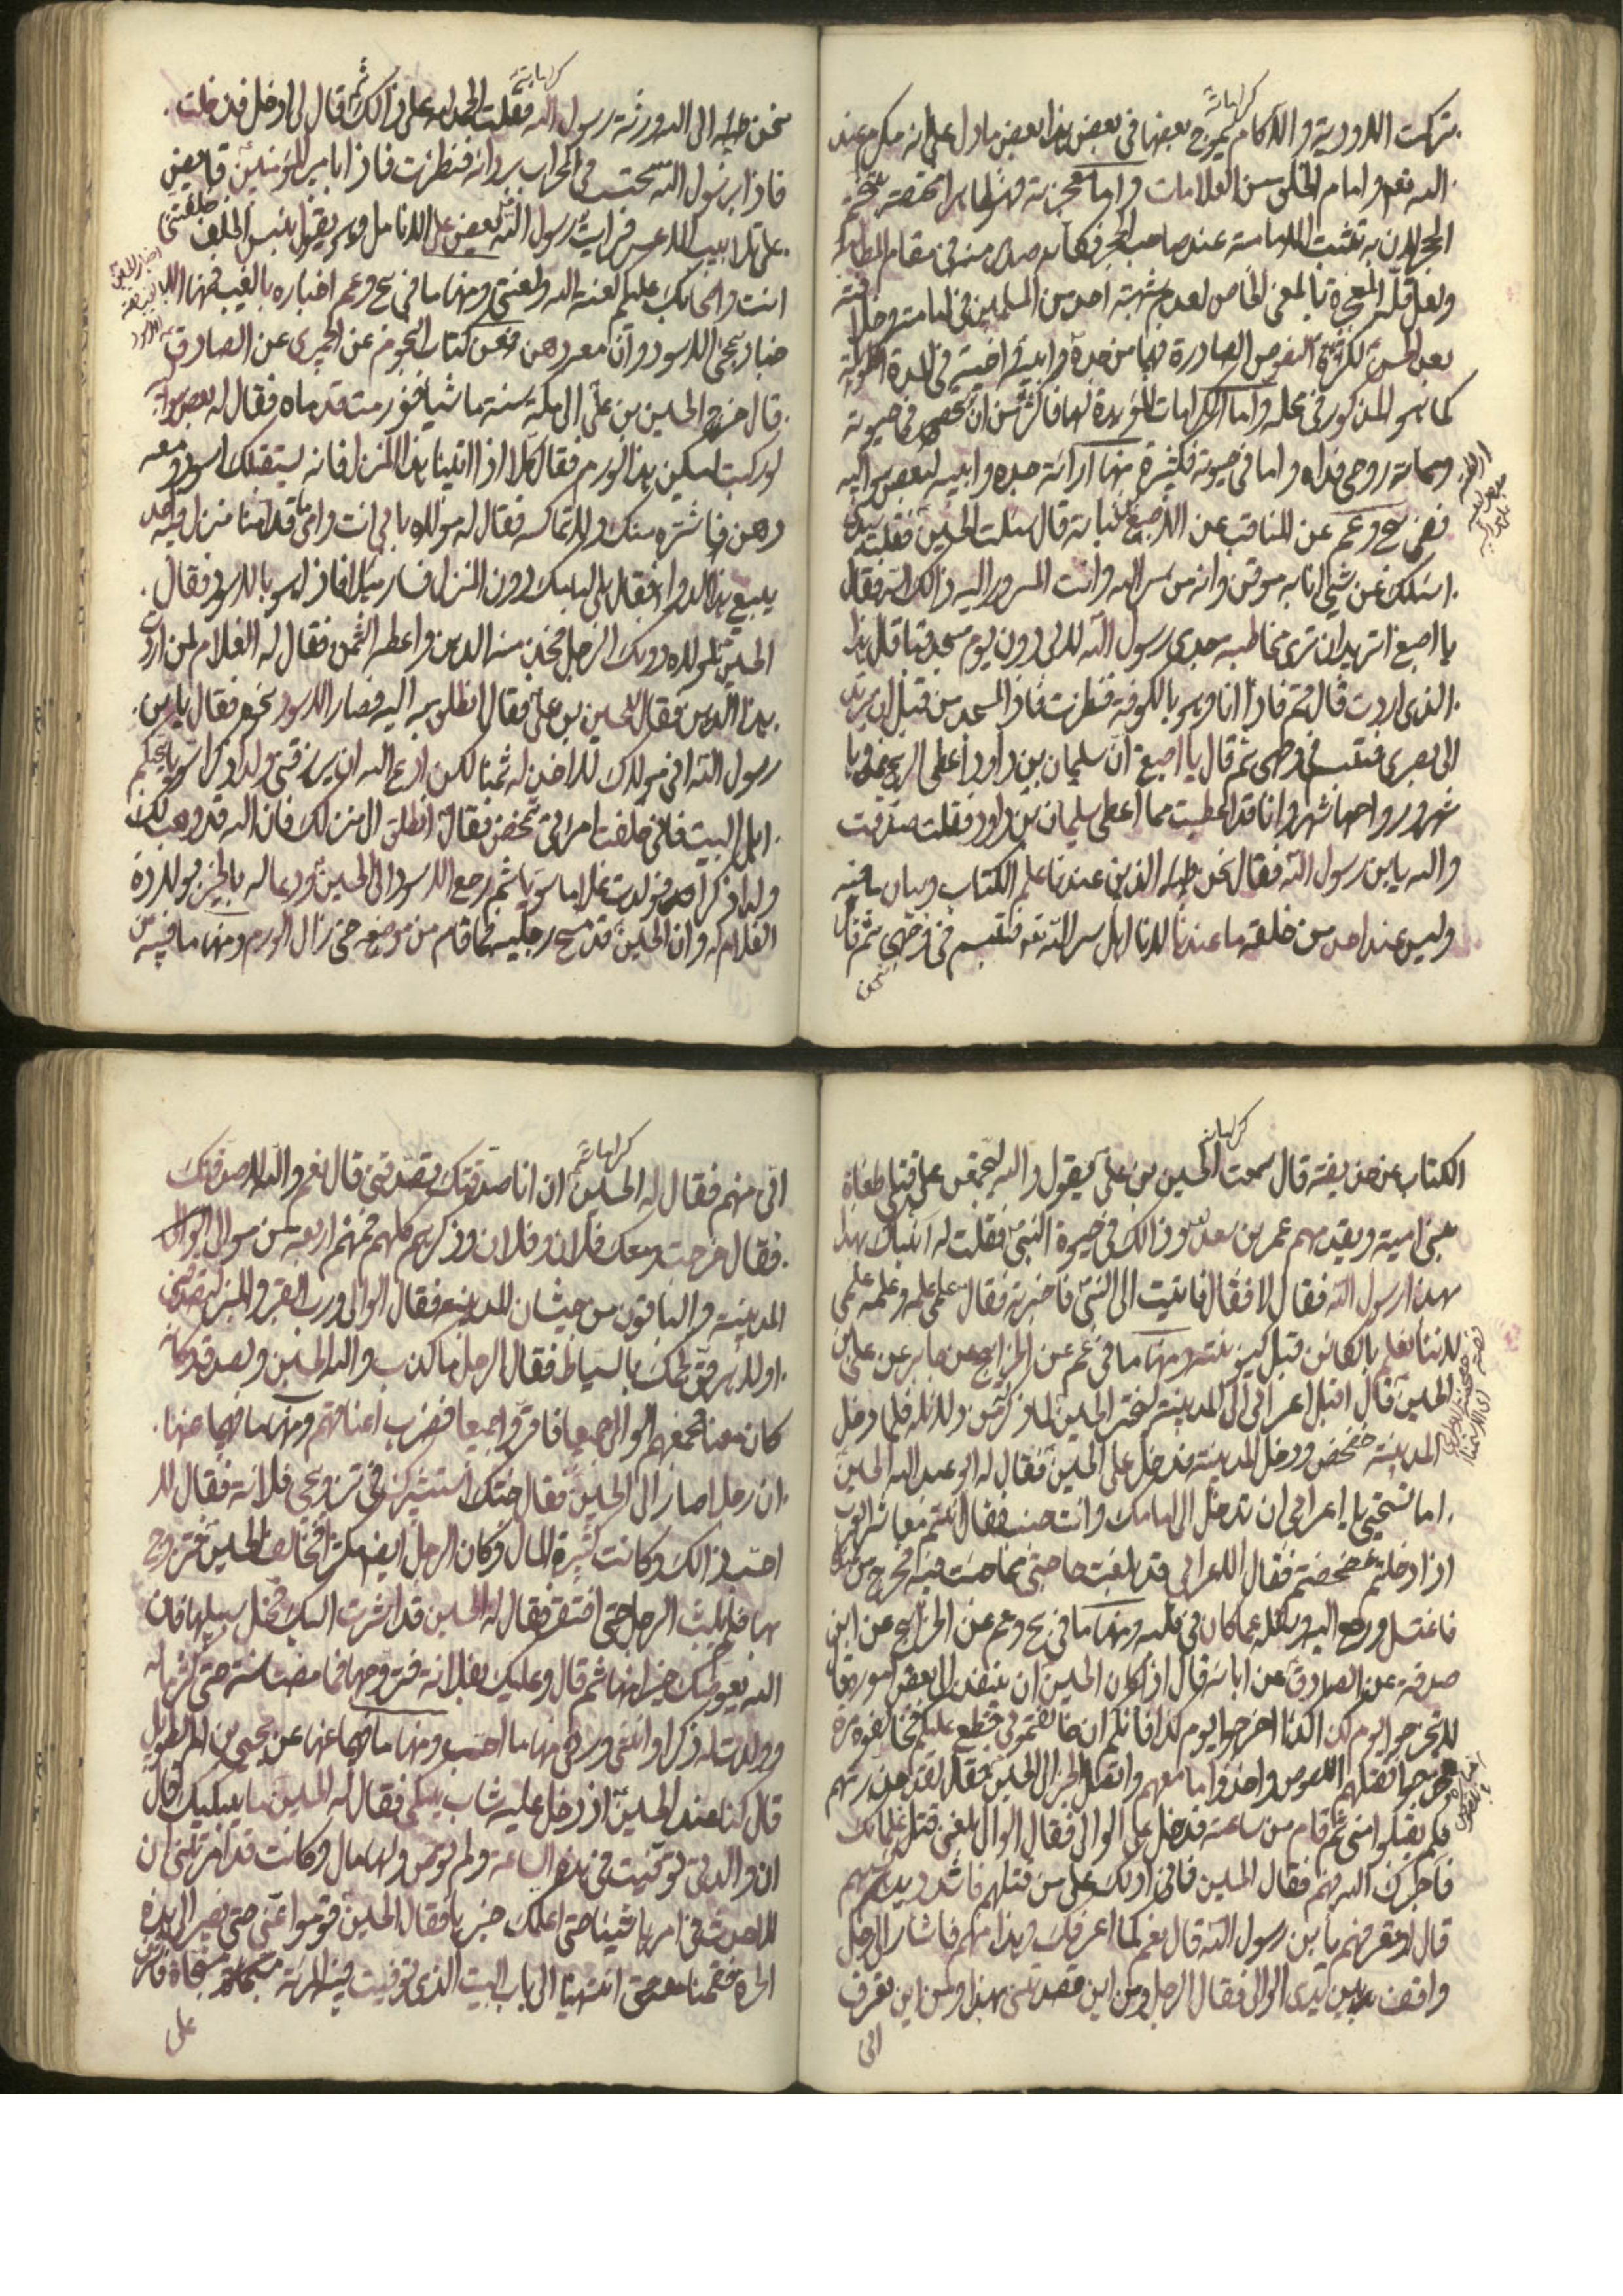 كراماته
تركت الاودية والآكام يموج بعضها في بعض هذا بعض مادل على انه مكرم عند
الله تعم وامام الخلق من العلامات واما معجزته فهو
الحجر لان به تثبت الامامة عند صاحب الحجر فكانه صدر منه في مقام المطالبة
ولعل قلة المعجزة بالمعنى الخاص لعدم شبهة احد من المسلمين في امامته وخلافته
بعد الحسن لكثرة النصوص الصادرة فيها من جده وابيه واخيه في المدة الطويلة
كما هو المذكور في محله واما الكرامات المؤيدة لها فاكثر من ان تحصى في حيوته
ومماته روحي فداه واما في حيوته فكثيرة منها ارائته جده وابيه لبعض مواليه
ففي يج وعم عن المناقب عن الاصبغ بن نباتة قال سئلت الحسين فقلت سيدي
اسئلك عن شيء انا به موقن وانه من سر الله وانت المسرور اليه ذالك السر فقال
يا اصبغ اتريد ان ترى مخاطبة جدي رسول الله لابي دون يوم مسجد قبا قال هذا
الذي اردت قال قم فاذا انا وهو بالكوفة فنظرت فاذا المسجد من قبل ان يرتد
الي بصري فتبسم في وجهي ثم قال يا اصبغ ان سليمان بن داود اعطي الريح غدوها
شهر ورواحها شهر وانا قد اعطيت مما اعطي سليمان بن داود فقلت صدقت
والله يابن رسول الله فقال نحن الذين عندنا علم الكتاب وبيان ما فيه
وليس عند احد من خلقه ما عندنا لانا اهل سر الله تعم فتبسم في وجهي ثم قال
نحن
كراماته
نحن اله الى الله وورثة رسول الله فقلت الحمد لله على ذالك ثم قال لي ادخل فدخلت
فاذا برسول الله محتب في المحراب بردائه فنظرت فاذا بامير المؤمنين قابض
على تلابيب الاعسر فرايت رسول الله يعض على الانامل وهو يقول بئس الخلف خلفتني
انت واصحابك عليكم لعنة الله ولعنتي ومنها ما في يج وعم اخباره بالغيب فمنها الا
خبار بمجيء الاسود وان معه دهن فعن كتاب النجوم عن الحميري عن الصادق
قال خرج الحسين بن علي الى مكة سنة ماشيا فورمت قدماه فقال له بعض مواليه
لو ركبت ليسكن هذا الورم فقال كلا اذا اتينا هذا المنزل فانه يستقبلك اسود ومعه
دهن فاشتره منه ولا تماكسه فقال له مولاه بابي انت وامي ما قدامنا منزل فيه احد
يبيع هذا الدواء فقال بلى امامك دون المنزل فسار ميلا فاذا هو بالاسود فقال
الحسين لمولاه دونك الرجل فخذ منه الدهن واعطه الثمن فقال له الغلام لمن اردت
هذا الدهن فقال للحسين بن علي فقال انطلق به اليه فصار الاسود نحوه فقال يابن
رسول الله اني مولاك لا اخذ له ثمنا لكن ادع الله ان يرزقني ولدا ذكرا سويا يحبكم
اهل البيت فاني خلفت امراتي تمخض فقال انطلق الى منزلك فان الله قد وهب لك
ولدا ذكرا فولدت غلاما سويا ثم رجع الاسود الى الحسين ودعا له بالخير بولادة
الغلام له وان الحسين قد مسح رجليه فما قام من موضعه حتى زال الورم ومنها ما فيه من
كراماته
الكتاب عن حذيفة قال سمعت الحسين بن علي يقول والله ليجتمعن على قتلي طغاة
بني امية ويقدمهم عمر بن سعد وذالك في حيوة النبي فقلت له انبئك بهذا
رسول الله فقال لا فقال فاتيت الى النبي فاخبرته فقال علمي علمه وعلمه علمي
لاننا نعلم بالكائن قبل كينونته ومنها ما في عم عن الخرايج عن جابر عن علي بن
الحسين قال اقبل اعرابي الى المدينة ليختبر الحسين لما ذكر من دلائله فلما دخل
المدينة خضخض ودخل المدينة فدخل على الحسين فقال له ابو عبد الله الحسين
اما تستحيي يا اعرابي ان تدخل الى امامك وانت جنب فقال انتم معاشر العرب
اذا دخلتم خضخضتم فقال الاعرابي قد بلغت حاجتي مما جئت فيه فخرج من عنده
فاغتسل ورجع اليه وسئله عما كان في قلبه ومنها ما في يج وعم عن الخرايج عن ابن
صدقة عن الصادق عن ابائه قال اذا كان الحسين ان ينفذ
لا تخرجوا يوم كذا اخرجوا يوم كذا فانكم ان خالفتموني قطع عليكم فخالفوه مرة
وخرجوا فقتلهم اللصوص واخذوا ما معهم واتصل الخبر الى الحسين فقال لقد حذرتهم
فلم يقبلوا مني ثم قام من ساعته فدخل على الوالي فقال الوالي بلغني قتل غلمانك
فآجرك الله فيهم فقال الحسين فاني ادلك على من قتلهم فاشدد يدك بهم
قال اوتعرفهم يابن رسول الله قال نعم كما اعرفك وهذا منهم فاشار الى رجل
واقف بين يدي الوالي فقال الرجل ومن اين قصدتني بهذا ومن اين تعرف
اني
كراماته
اني منهم فقال له الحسين ان انا صدقتك تصدقني قال نعم والله لاصدقنك
فقال خرجت ومعك فلان وفلان وذكرهم كلهم فمنهم اربعة من موالي
المدينة والباقون من حبشان المدينة فقال الوالي ورب القبر والمنبر لتصدقني
او لاهرقن لحمك بالسياط فقال الرجل ما كذب والله الحسين ولصدق كانه
كان معنا فجمعهم الوالي جميعا فاقروا جميعا فضرب اعناقهم ومنها ما فيهما عنها
ان رجلا صار الى الحسين فقال جئتك استشيرك في تزويجي فلانة فقال لا
احب ذالك وكانت كثيرة المال وكان الرجل ايضا مكثرا فخالف الحسين فتزوج
بها فلم يلبث الرجل حتى افتقر فقال له الحسين قد اشرت اليك فخل سبيلها فان
الله يعوضك خيرا منها ثم قال وعليك بفلانة فتزوجها فما مضت سنة حتى كثر ماله
وولدت له ذكرا وانثى ورأى منها ما احب ومنها ما فيهما عنها عن يحيى بن ام الطويل
قال كنا عند الحسين اذ دخل عليه شاب يبكي فقال له الحسين ما يبكيك قال
ان والدتي توفيت في هذه الساعة ولم توص ولها مال وكانت قد امرتني ان
لا احدث في امرها شيئا حتى اعلمك خبرها فقال الحسين قوموا عني حتى نصير الى هذه
الحرة فقمنا معه حتى انتهينا الى باب البيت الذي توفيت فيه المرئة مسجاة فاشرف
على